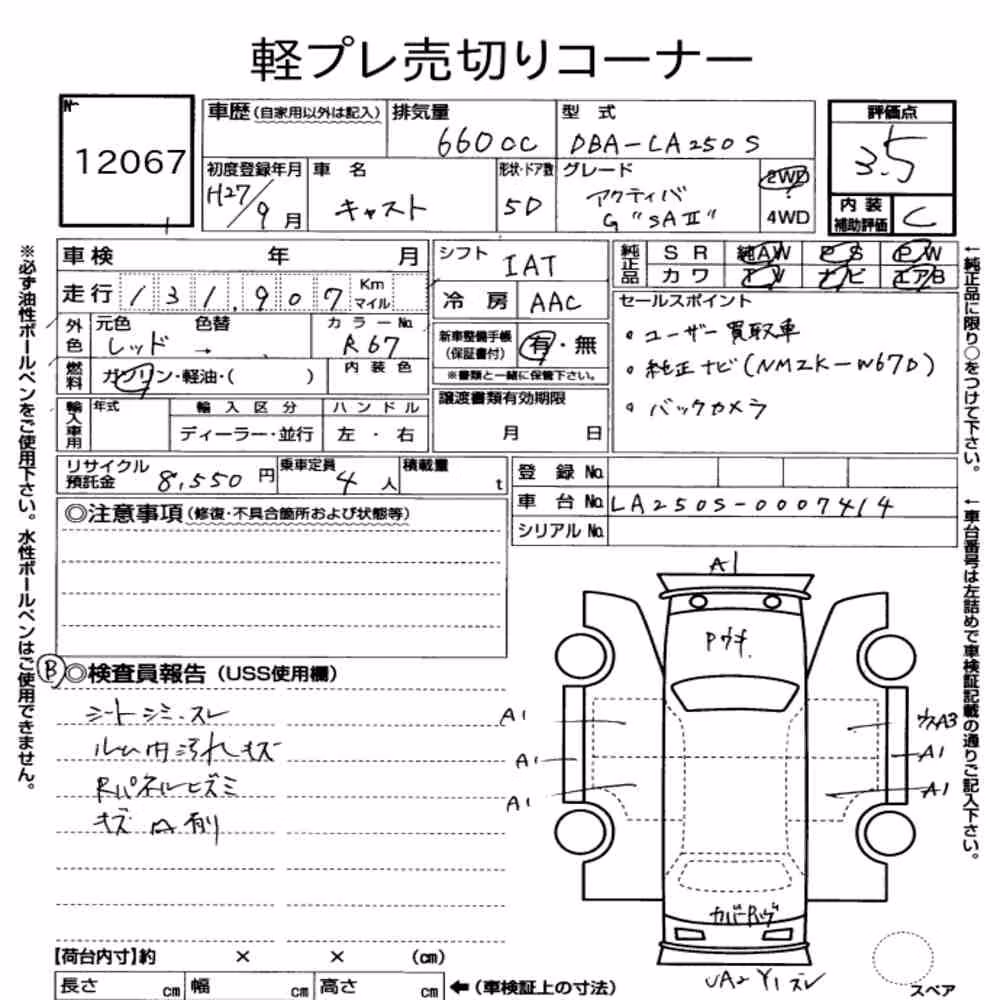 軽プレ売切りコーナー
№
12067
車歴(自家用以外は記入)
排気量
660cc
型 式
DBA-LA250S
評価点
3.5
初度登録年月
H27/9月
車 名
キャスト
形状・ドア数
5D
グレード
アクティバ
G "SAⅡ"
2WD
4WD
内 装
補助評価
C
車検 年 月
シフト
IAT
純正品
S R 純AW P S P W
カ ワ T V ナビ エアB
走行 131,907 Km
マイル
冷 房
AAC
セールスポイント
・ユーザー買取車
・純正ナビ(NMZK-W67D)
・バックカメラ
外色
元色 色替
レッド →
カラーNo.
R67
新車整備手帳
(保証書付)
有・無
※書類と一緒に保管下さい。
燃料
ガソリン・軽油・( )
内 装 色
輸入車用
年式
輸 入 区 分
ディーラー・並行
ハ ン ド ル
左 ・ 右
譲渡書類有効期限
月 日
リサイクル
預託金
8,550円
乗車定員
4人
積載量
t
登 録 No.
車 台 No. LA250S-0007414
シリアル No.
◎注意事項(修復・不具合箇所および状態等)
Ⓑ◎検査員報告(USS使用欄)
シートシミ・スレ
ルーム内汚れキズ
Rパネルヒズミ
キズ 凹 有り
A1
Pウキ
A1
A1
A1
A3
A1
A1
カバーRヅヅ
UA2 Y1 ズレ
スペア
【荷台内寸】約 × × (cm)
長さ cm 幅 cm 高さ cm ←(車検証上の寸法)
※必ず油性ボールペンをご使用下さい。水性ボールペンはご使用できません。
←純正品に限り○をつけて下さい。
←車台番号は左詰めで車検証記載の通りご記入下さい。